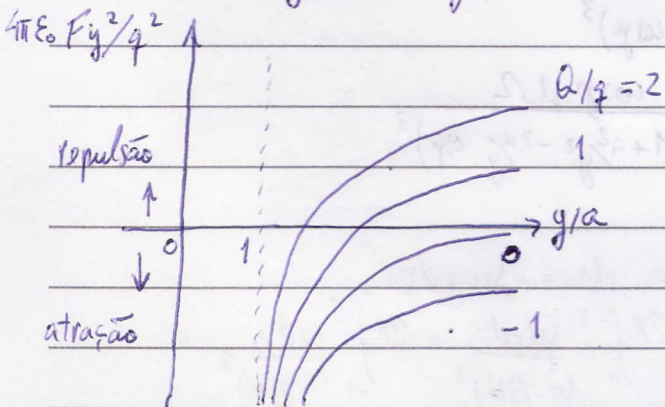 4πε₀ Fy²/q²
Q/q = 2
repulsão
1
0 1 y/a
0
atração
-1